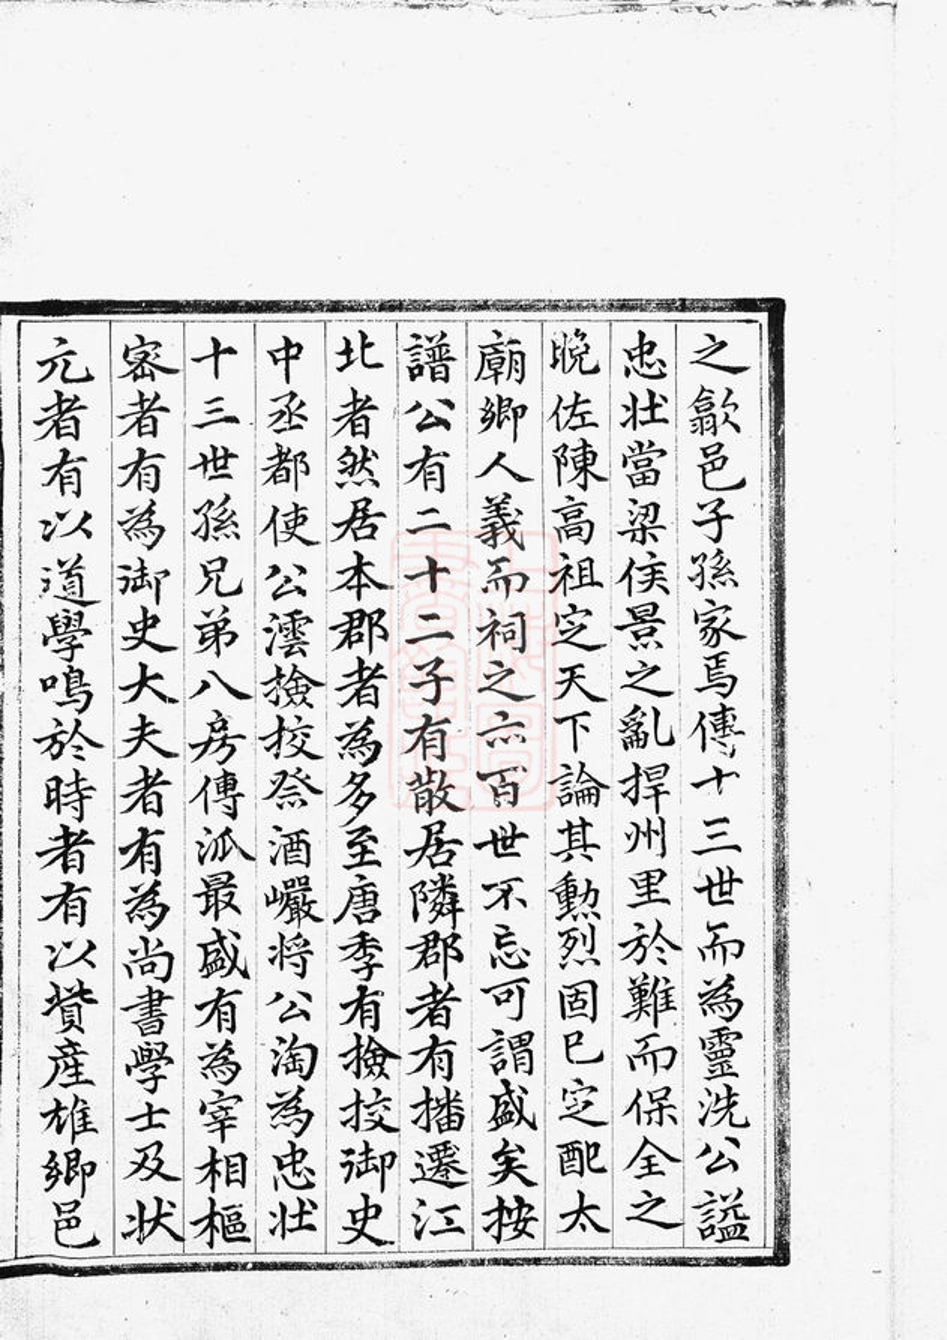 之歙邑子孫家焉傳十三世而為靈洗公諡
忠壯當梁侯景之亂捍州里於難而保全之
晚佐陳高祖定天下論其勲烈固已定配太
廟鄉人義而祠之亦百世不忘可謂盛矣按
譜公有二十二子有散居隣郡者有播遷江
北者然居本郡者為多至唐季有撿挍御史
中丞都使公澐撿挍祭酒巗将公淘為忠壯
十三世孫兄弟八房傳派最盛有為宰相樞
密者有為御史大夫者有為尚書學士及状
元者有以道學鳴於時者有以貲産雄鄉邑